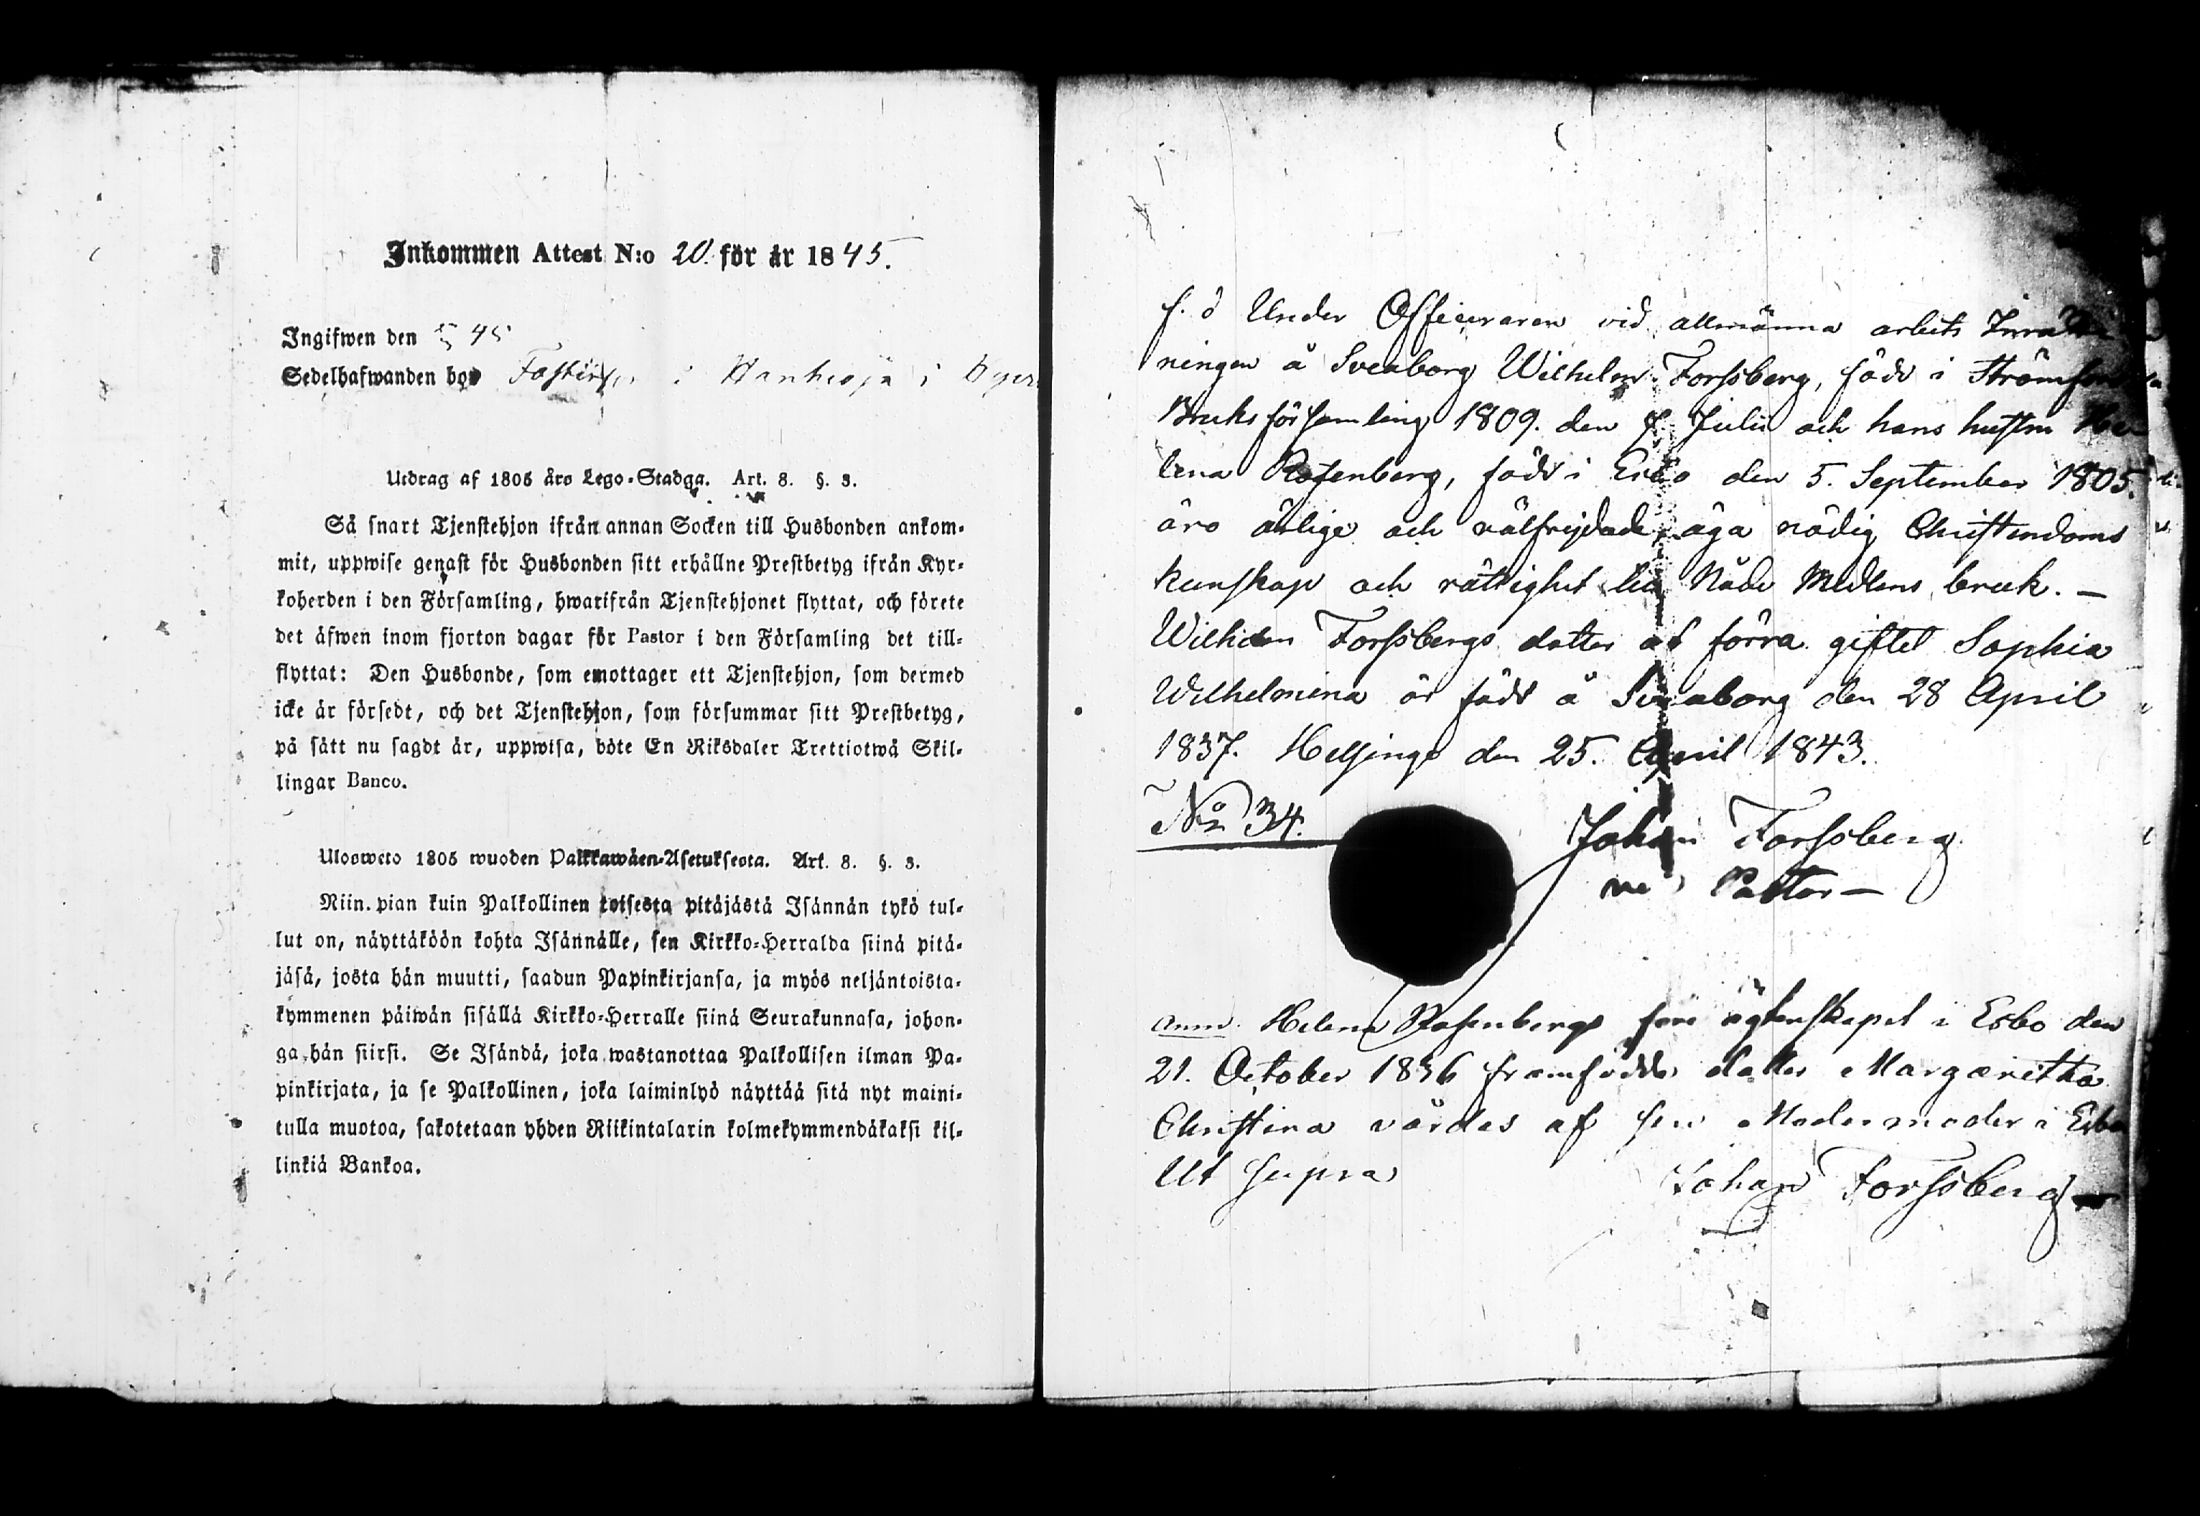 Inkommen Attest N:o 20. för år 1845.
Ingifwen den 45
Sedelhafwanden bor i
Utdrag af 1805 års Lego-Stadga. Art. 8. §. 3.
Så snart Tjenstehjon ifrån annan Socken till Husbonden ankom-
mit, uppwise genast för Husbonden sitt erhållne Prestbetyg ifrån Kyr-
koherden i den Församling, hwarifrån Tjenstehjonet flyttat, och förete
det äfwen inom fjorton dagar för Pastor i den Församling det till-
flyttat: Den Husbonde, som emottager ett Tjenstehjon, som dermed
icke är försedt, och det Tjenstehjon, som försummar sitt Prestbetyg,
på sätt nu sagdt är, uppwisa, böte En Riksdaler Trettiotwå Skil-
lingar Banco.
Ulosweto 1805 wuoden Palkkawäen-Asetuksesta. Art. 8. §. 3.
Niin pian kuin Palkollinen toisesta pitäjästä Isännän tykö tul-
lut on, näyttäköön kohta Isännälle, sen Kirkko-Herralda siinä pitä-
jäsä, josta hän muutti, saadun Papinkirjansa, ja myös neljäntoista-
kymmenen päiwän sisällä Kirkko-Herralle siinä Seurakunnasa, johon-
ga hän siirsi. Se Isändä, joka wastanottaa Palkollisen ilman Pa-
pinkirjata, ja se Palkollinen, joka laiminlyö näyttää sitä nyt maini-
tulla muotoa, sakotetaan yhden Riikintalarin kolmekymmendäkaksi kil-
linkiä Bankoa.
f. d Under Officeraren vid allmänna arbets
ningen å Sveaborg Wilhelm Forssberg, född i
Bruks församling 1809. den Julii och hans hustru He
lena Rosenberg, född i Esbo den 5. September 1805.
äro ärlige och välfrejdade, äga nödig Christendoms
kunskap och rättighet till Nåde Medlens bruk. —
Wilhelm Forssbergs dotter af förra giftet Sophia
Wilhelmina är född å Sveaborg den 28 April
1837. Helsinge den 25. April 1843.
No 34.
Johan Forssberg
Pastor —
Anm. Helena Rosenbergs före ägtenskapet i Esbo den
21. October 1836 framfödda dotter Margaretha
Christina vårdas af sin Modermoder i Esbo
Ut supra
Johan Forssberg